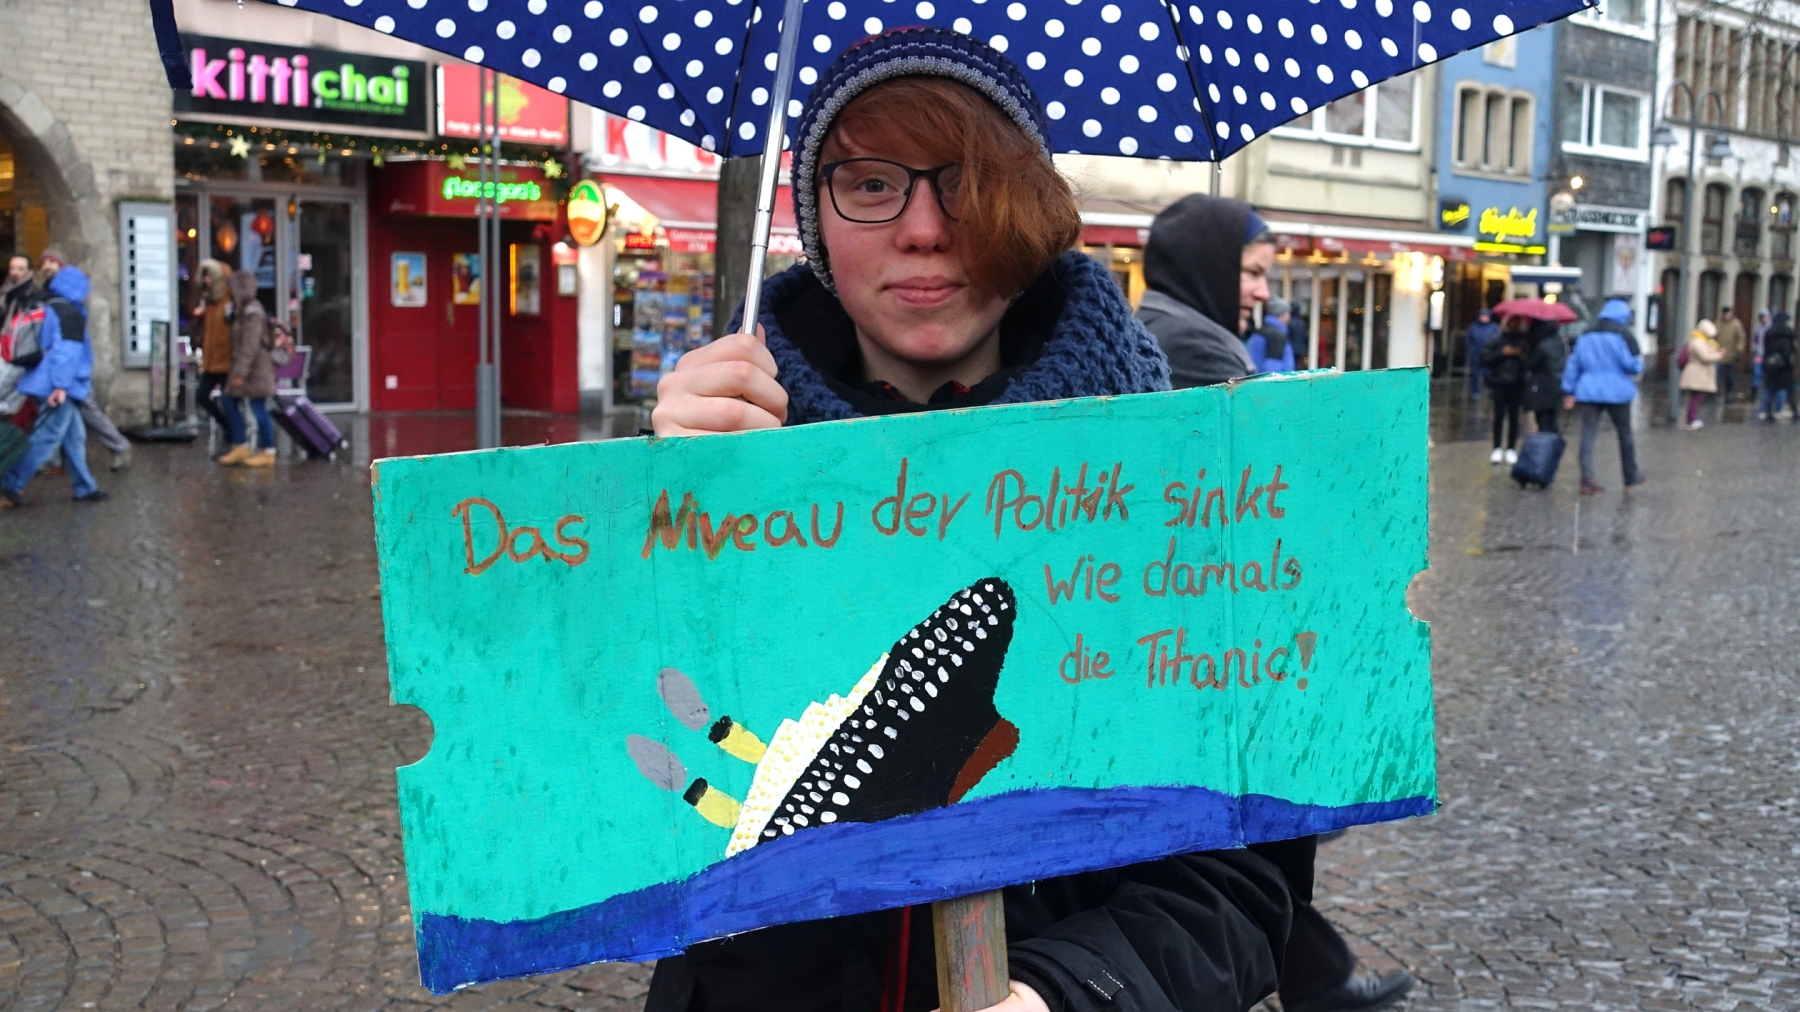 kittichai
flanagan's
täglich
Das Niveau der Politik sinkt
wie damals
die Titanic!